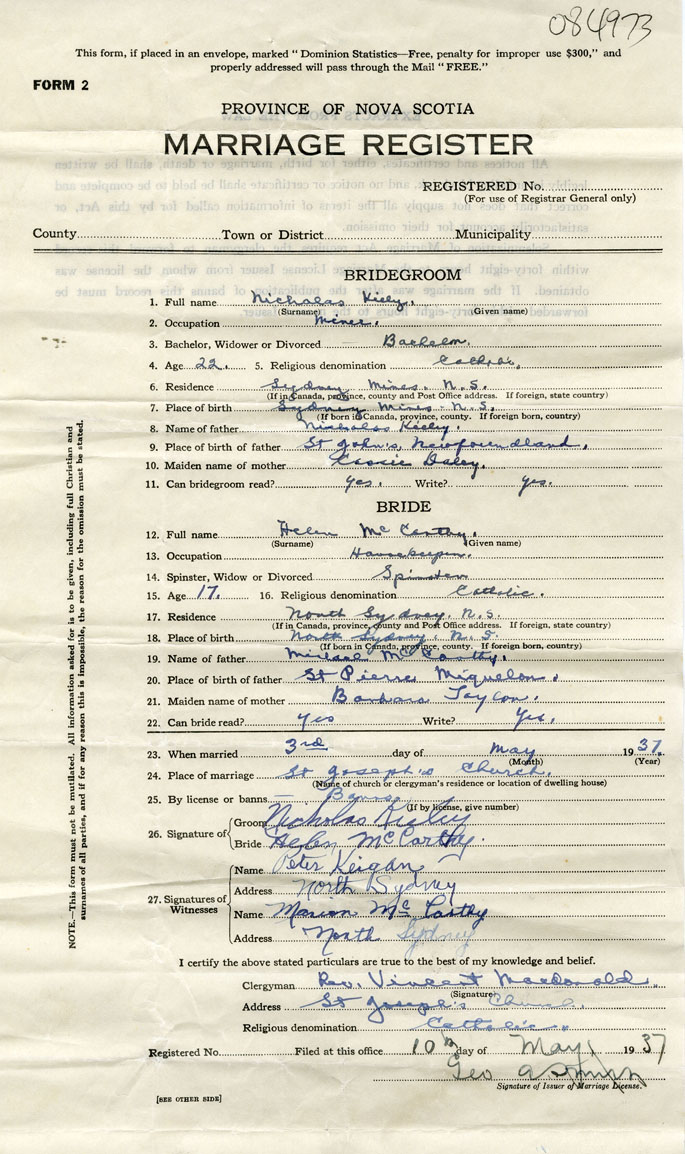 084973
This form, if placed in an envelope, marked "Dominion Statistics—Free, penalty for improper use $300," and
properly addressed will pass through the Mail "FREE."
FORM 2
PROVINCE OF NOVA SCOTIA
MARRIAGE REGISTER
REGISTERED No.
(For use of Registrar General only)
County Town or District Municipality
BRIDEGROOM
1. Full name Nicholas Kiely.
(Surname) (Given name)
2. Occupation Miner.
3. Bachelor, Widower or Divorced Bachelor.
4. Age 22. 5. Religious denomination Catholic.
6. Residence Sydney Mines. N.S.
(If in Canada, province, county and Post Office address. If foreign, state country)
7. Place of birth Sydney Mines. N.S.
(If born in Canada, province, county. If foreign born, country)
8. Name of father Nicholas Kiely.
9. Place of birth of father St John's, Newfoundland.
10. Maiden name of mother Cassie Daley.
11. Can bridegroom read? yes. Write? yes.
BRIDE
12. Full name Helen McCarthy.
(Surname) (Given name)
13. Occupation Housekeeper.
14. Spinster, Widow or Divorced Spinster
15. Age 17. 16. Religious denomination Catholic.
17. Residence North Sydney. N.S.
(If in Canada, province, county and Post Office address. If foreign, state country)
18. Place of birth North Sydney. N.S.
(If born in Canada, province, county. If foreign born, country)
19. Name of father Michael McCarthy.
20. Place of birth of father St Pierre Miquelon.
21. Maiden name of mother Barbara Taylor.
22. Can bride read? Yes Write? Yes.
23. When married 3rd day of May 1937.
(Month) (Year)
24. Place of marriage St Joseph's Church.
(Name of church or clergyman's residence or location of dwelling house)
25. By license or banns — Banns
(If by license, give number)
26. Signature of Groom Nicholas Kiely
Bride Helen McCarthy.
27. Signatures of Witnesses
Name Peter Keigan
Address North Sydney
Name Marion McCarthy
Address North Sydney
I certify the above stated particulars are true to the best of my knowledge and belief.
Clergyman Rev. Vincent Macdonald.
(Signature)
Address St Joseph's Church.
Religious denomination Catholic.
Registered No. Filed at this office 10th day of May 1937
Geo
Signature of Issuer of Marriage License.
[SEE OTHER SIDE]
NOTE.—This form must not be mutilated. All information asked for is to be given, including full Christian and
surnames of all parties, and if for any reason this is impossible, the reason for the omission must be stated.